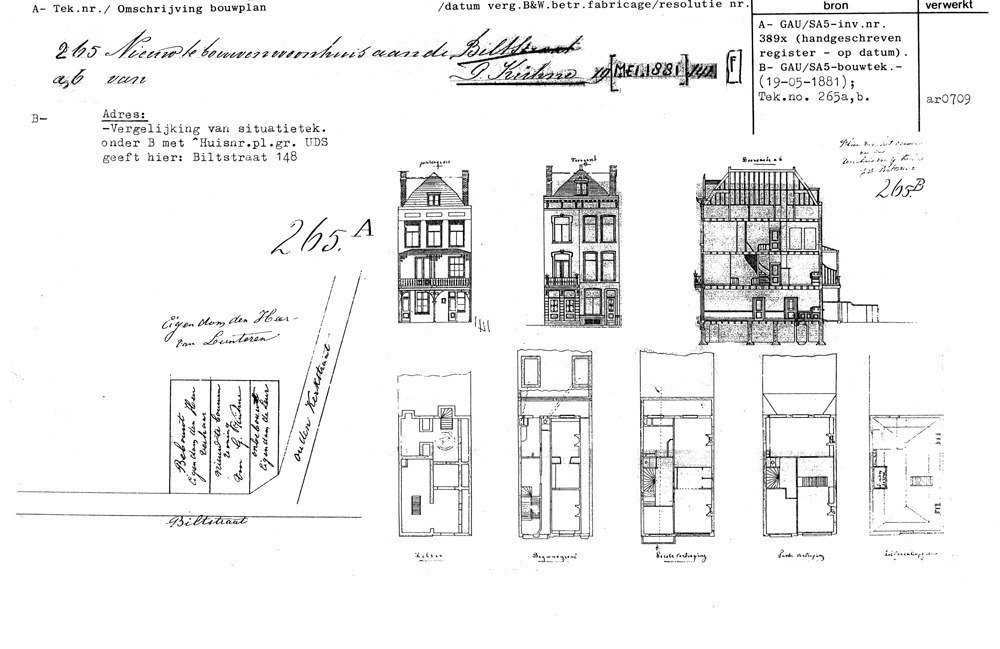 A- Tek.nr./ Omschrijving bouwplan
/datum verg.B&W.betr.fabricage/resolutie nr.
bron
verwerkt
265 Nieuw te bouwen woonhuis aan de Biltstraat
a,b van G. Kühne 19 MEI.1881 F
A- GAU/SA5-inv.nr.
389x (handgeschreven
register - op datum).
B- GAU/SA5-bouwtek.-
(19-05-1881);
Tek.no. 265a,b.
ar0709
B-
Adres:
-Vergelijking van situatietek.
onder B met ^Huisnr.pl.gr. UDS
geeft hier: Biltstraat 148
265.A
265.B
Voorgevel
Doorsnede a b
Eigendom den Heer
van Leunteren
Bebouwt
Eigendom den Heer
Nieuw te bouwen
woning
van G. Kühne
onbebouwt
Eigendom den Heer
ouden Kerkstraat
Biltstraat
Kelder
Begane grond
Eerste verdieping